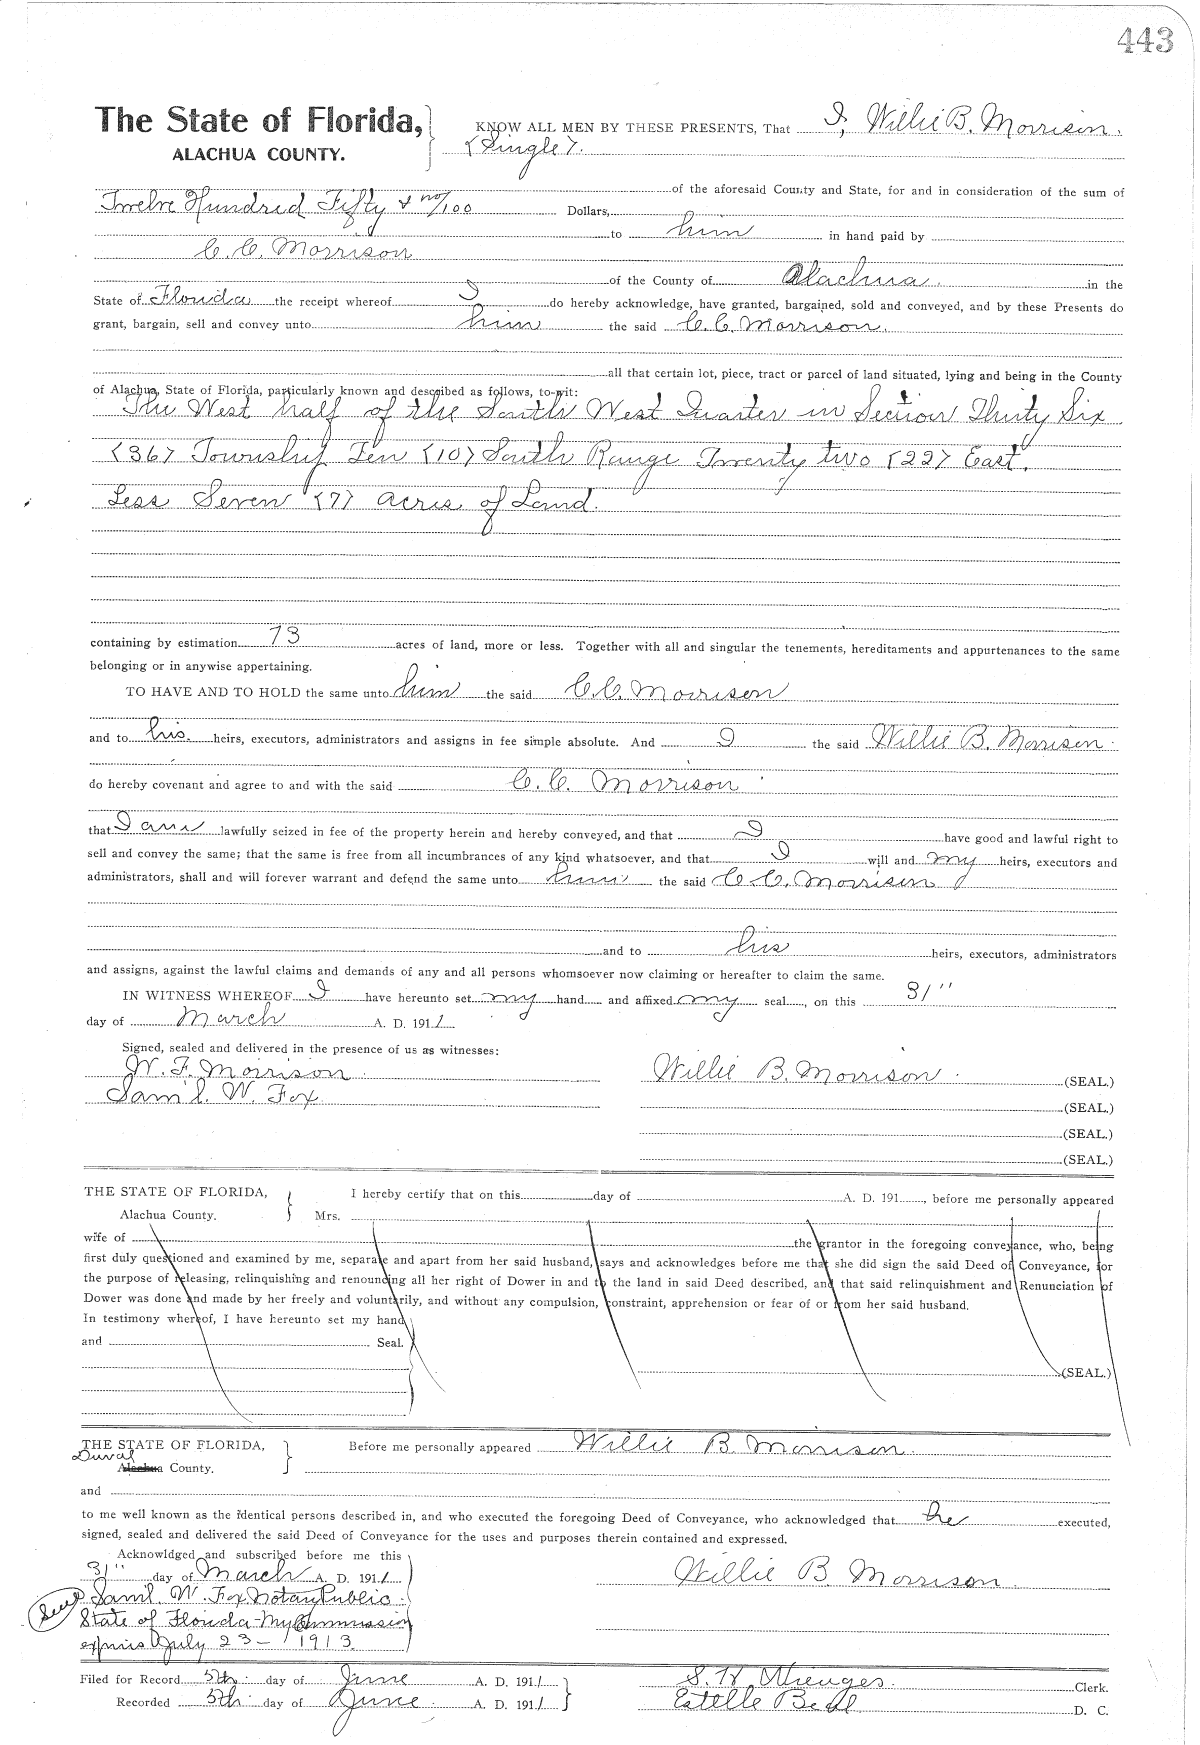 443
The State of Florida, KNOW ALL MEN BY THESE PRESENTS, That I, Willie B. Morrison.
ALACHUA COUNTY. (Single).
of the aforesaid County and State, for and in consideration of the sum of
Twelve Hundred Fifty & no/100 Dollars,
to him in hand paid by
C. C. Morrison
of the County of Alachua. in the
State of Florida the receipt whereof I do hereby acknowledge, have granted, bargained, sold and conveyed, and by these Presents do
grant, bargain, sell and convey unto him the said C. C. Morrison.
all that certain lot, piece, tract or parcel of land situated, lying and being in the County
of Alachua, State of Florida, particularly known and described as follows, to-wit:
The West half of the South West Quarter in Section Thirty Six
(36) Township Ten (10) South Range Twenty two (22) East.
Less Seven (7) acres of Land.
containing by estimation 73 acres of land, more or less. Together with all and singular the tenements, hereditaments and appurtenances to the same
belonging or in anywise appertaining.
TO HAVE AND TO HOLD the same unto him the said C. C. Morrison
and to his. heirs, executors, administrators and assigns in fee simple absolute. And I the said Willie B. Morrison.
do hereby covenant and agree to and with the said C. C. Morrison
that I am lawfully seized in fee of the property herein and hereby conveyed, and that I have good and lawful right to
sell and convey the same; that the same is free from all incumbrances of any kind whatsoever, and that I will and my heirs, executors and
administrators, shall and will forever warrant and defend the same unto him the said C. C. Morrison
and to his heirs, executors, administrators
and assigns, against the lawful claims and demands of any and all persons whomsoever now claiming or hereafter to claim the same.
IN WITNESS WHEREOF I have hereunto set my hand and affixed my seal, on this 31"
day of March A. D. 1911
Signed, sealed and delivered in the presence of us as witnesses:
W. F. Morrison Willie B. Morrison. (SEAL.)
Sam'l. W. Fox (SEAL.)
(SEAL.)
(SEAL.)
THE STATE OF FLORIDA, I hereby certify that on this day of A. D. 191, before me personally appeared
Alachua County. Mrs.
wife of the grantor in the foregoing conveyance, who, being
first duly questioned and examined by me, separate and apart from her said husband, says and acknowledges before me that she did sign the said Deed of Conveyance, for
the purpose of releasing, relinquishing and renouncing all her right of Dower in and to the land in said Deed described, and that said relinquishment and Renunciation of
Dower was done and made by her freely and voluntarily, and without any compulsion, constraint, apprehension or fear of or from her said husband.
In testimony whereof, I have hereunto set my hand
and Seal.
(SEAL.)
THE STATE OF FLORIDA, Before me personally appeared Willie B. Morrison.
Duval
Alachua County.
and
to me well known as the identical persons described in, and who executed the foregoing Deed of Conveyance, who acknowledged that he executed,
signed, sealed and delivered the said Deed of Conveyance for the uses and purposes therein contained and expressed.
Acknowldged and subscribed before me this
31" day of March A. D. 1911 Willie B Morrison.
(Seal) Saml. W. Fox Notary Public.
State of Florida - My Commission
expires July 23 - 1913.
Filed for Record 5th. day of June A. D. 1911 S. H. Wienges. Clerk.
Recorded 5th. day of June A. D. 1911 Estelle Beal D. C.